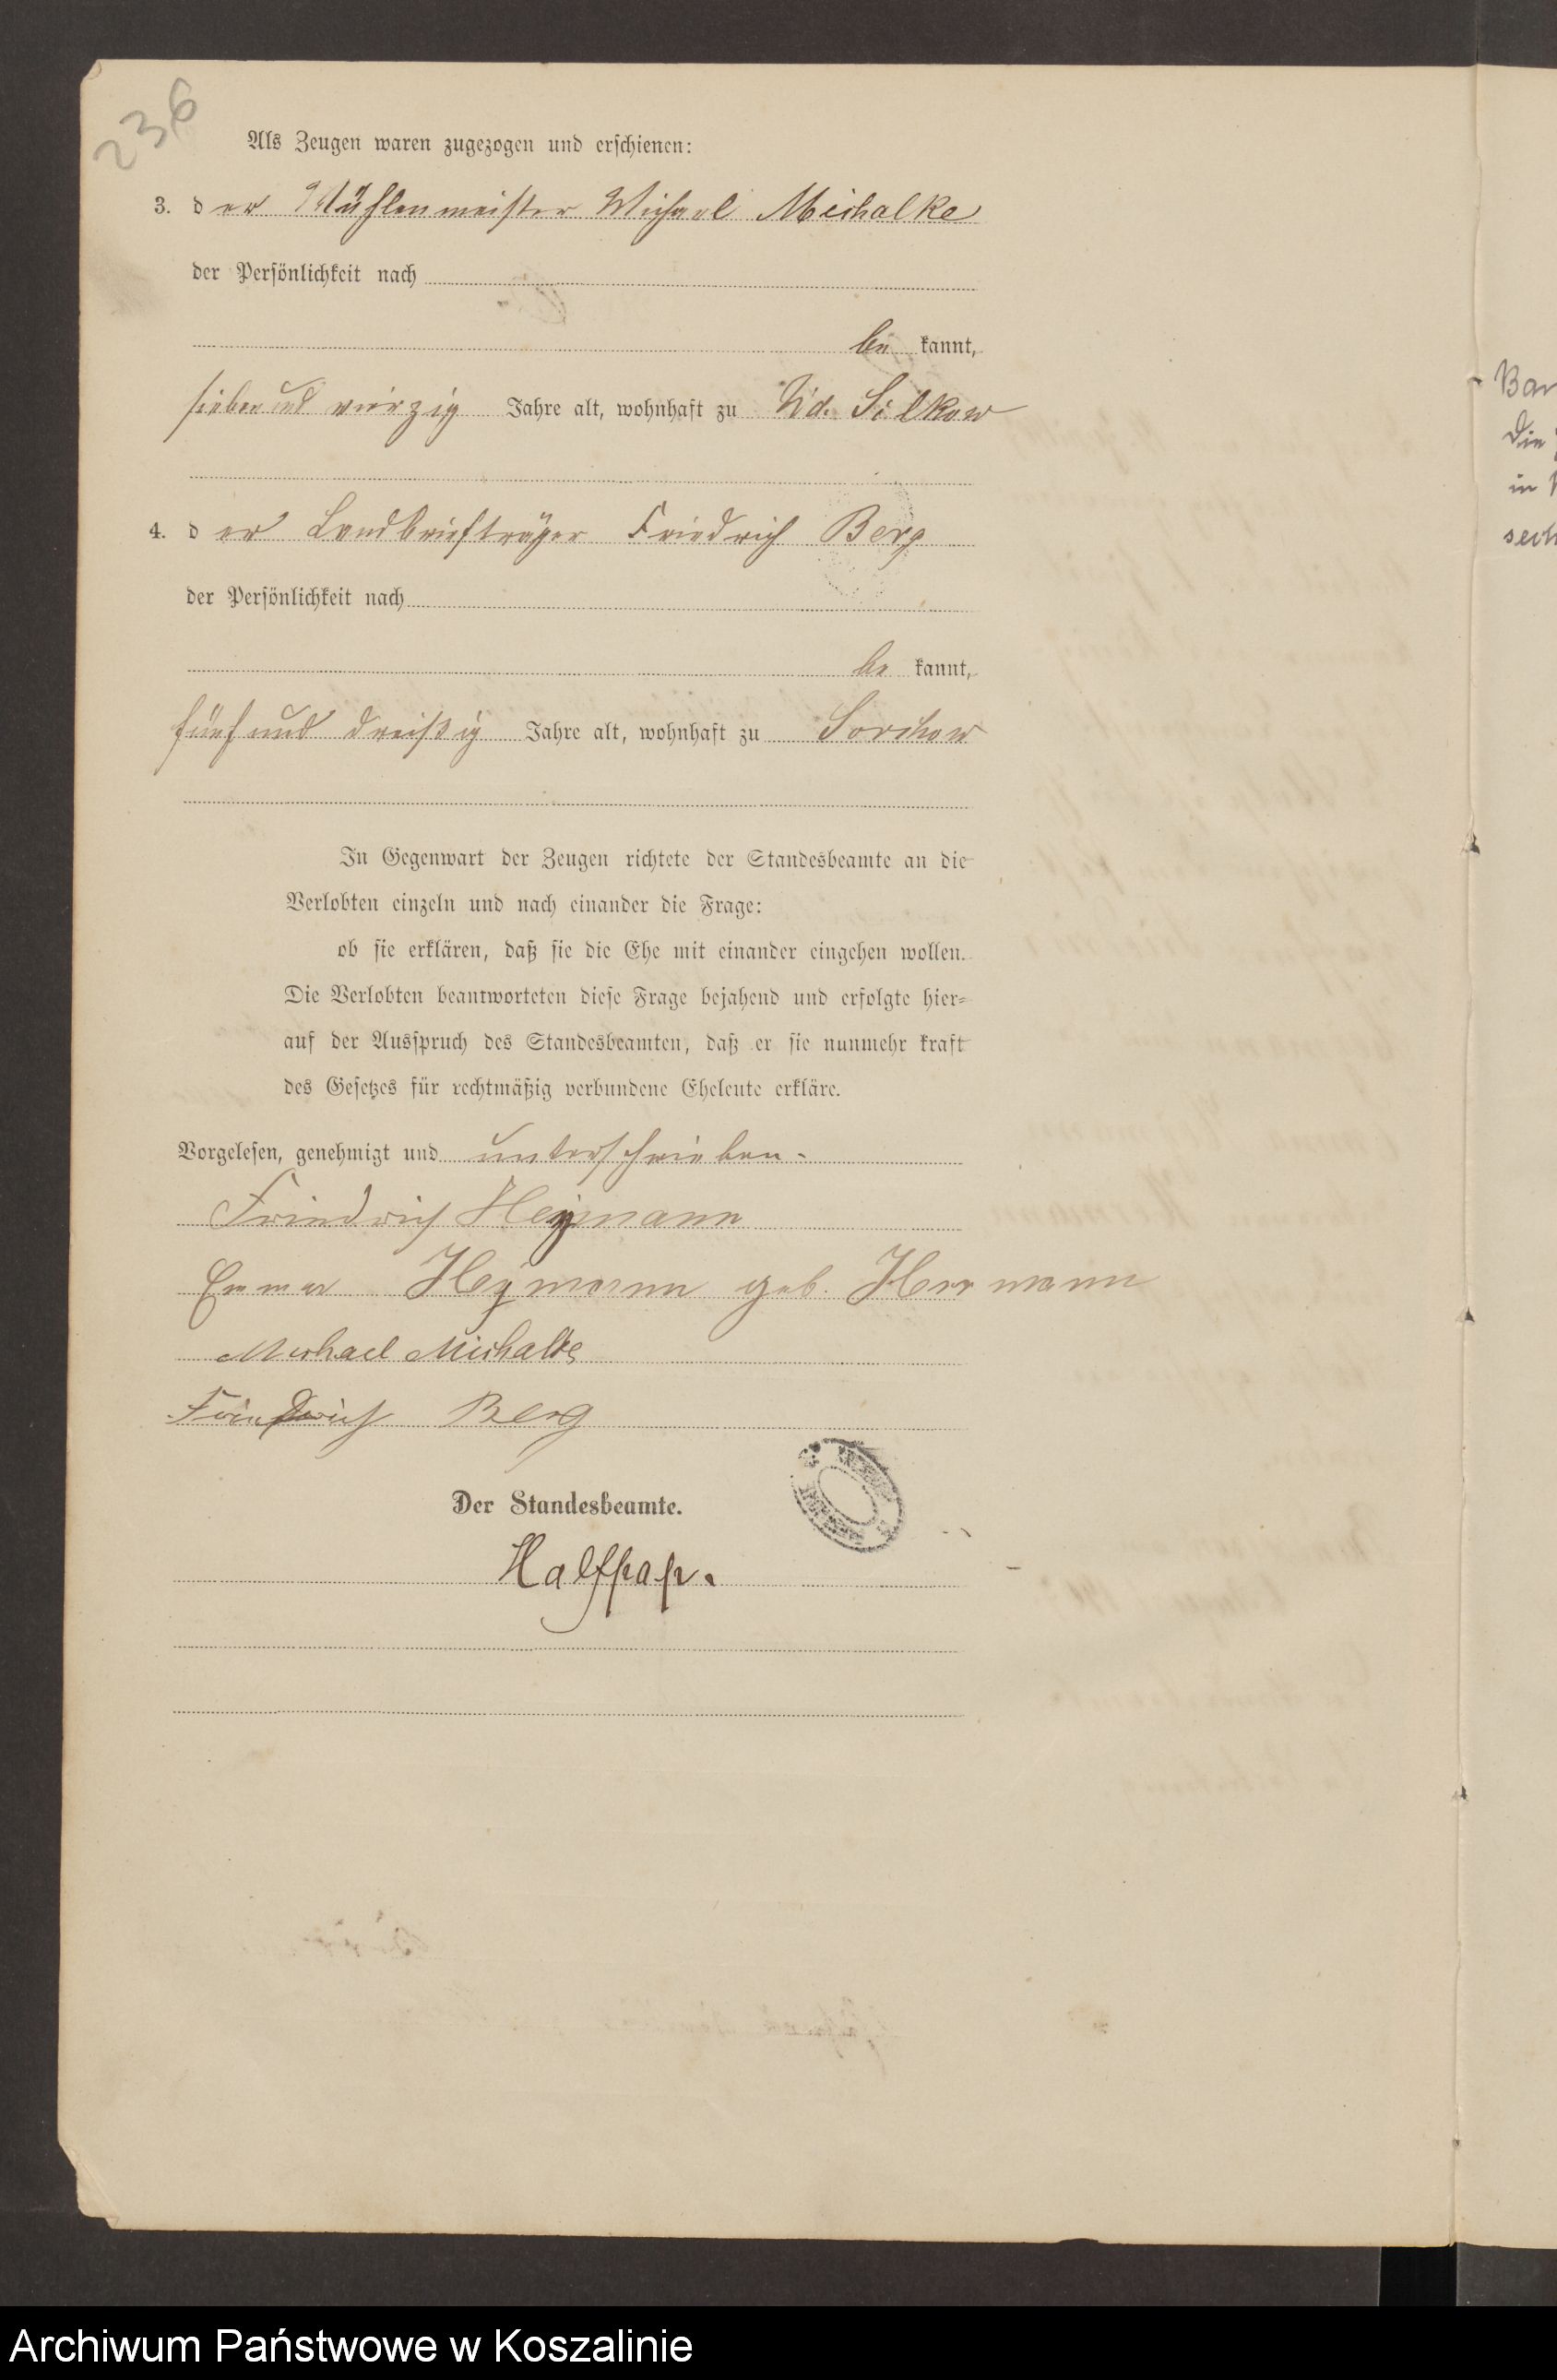 236
Als Zeugen waren zugezogen und erschienen:
3. der Mühlenmeister Michael Mischalke
der Persönlichkeit nach
be kannt,
siebenund vierzig Jahre alt, wohnhaft zu Nd. Silkow
4. der Landbriefträger Friedrich Berg
der Persönlichkeit nach
be kannt,
fünfund dreißig Jahre alt, wohnhaft zu Sorchow
In Gegenwart der Zeugen richtete der Standesbeamte an die
Verlobten einzeln und nach einander die Frage:
ob sie erklären, daß sie die Ehe mit einander eingehen wollen.
Die Verlobten beantworteten diese Frage bejahend und erfolgte hier=
auf der Ausspruch des Standesbeamten, daß er sie nunmehr kraft
des Gesetzes für rechtmäßig verbundene Eheleute erkläre.
Vorgelesen, genehmigt und unterschrieben.
Friedrich Heymann
Emma Heymann geb. Herrmann
Michael Mischalke
Friedrich Berg
Der Standesbeamte.
Halfpap.
Bar
Die
in
Archiwum Państwowe w Koszalinie